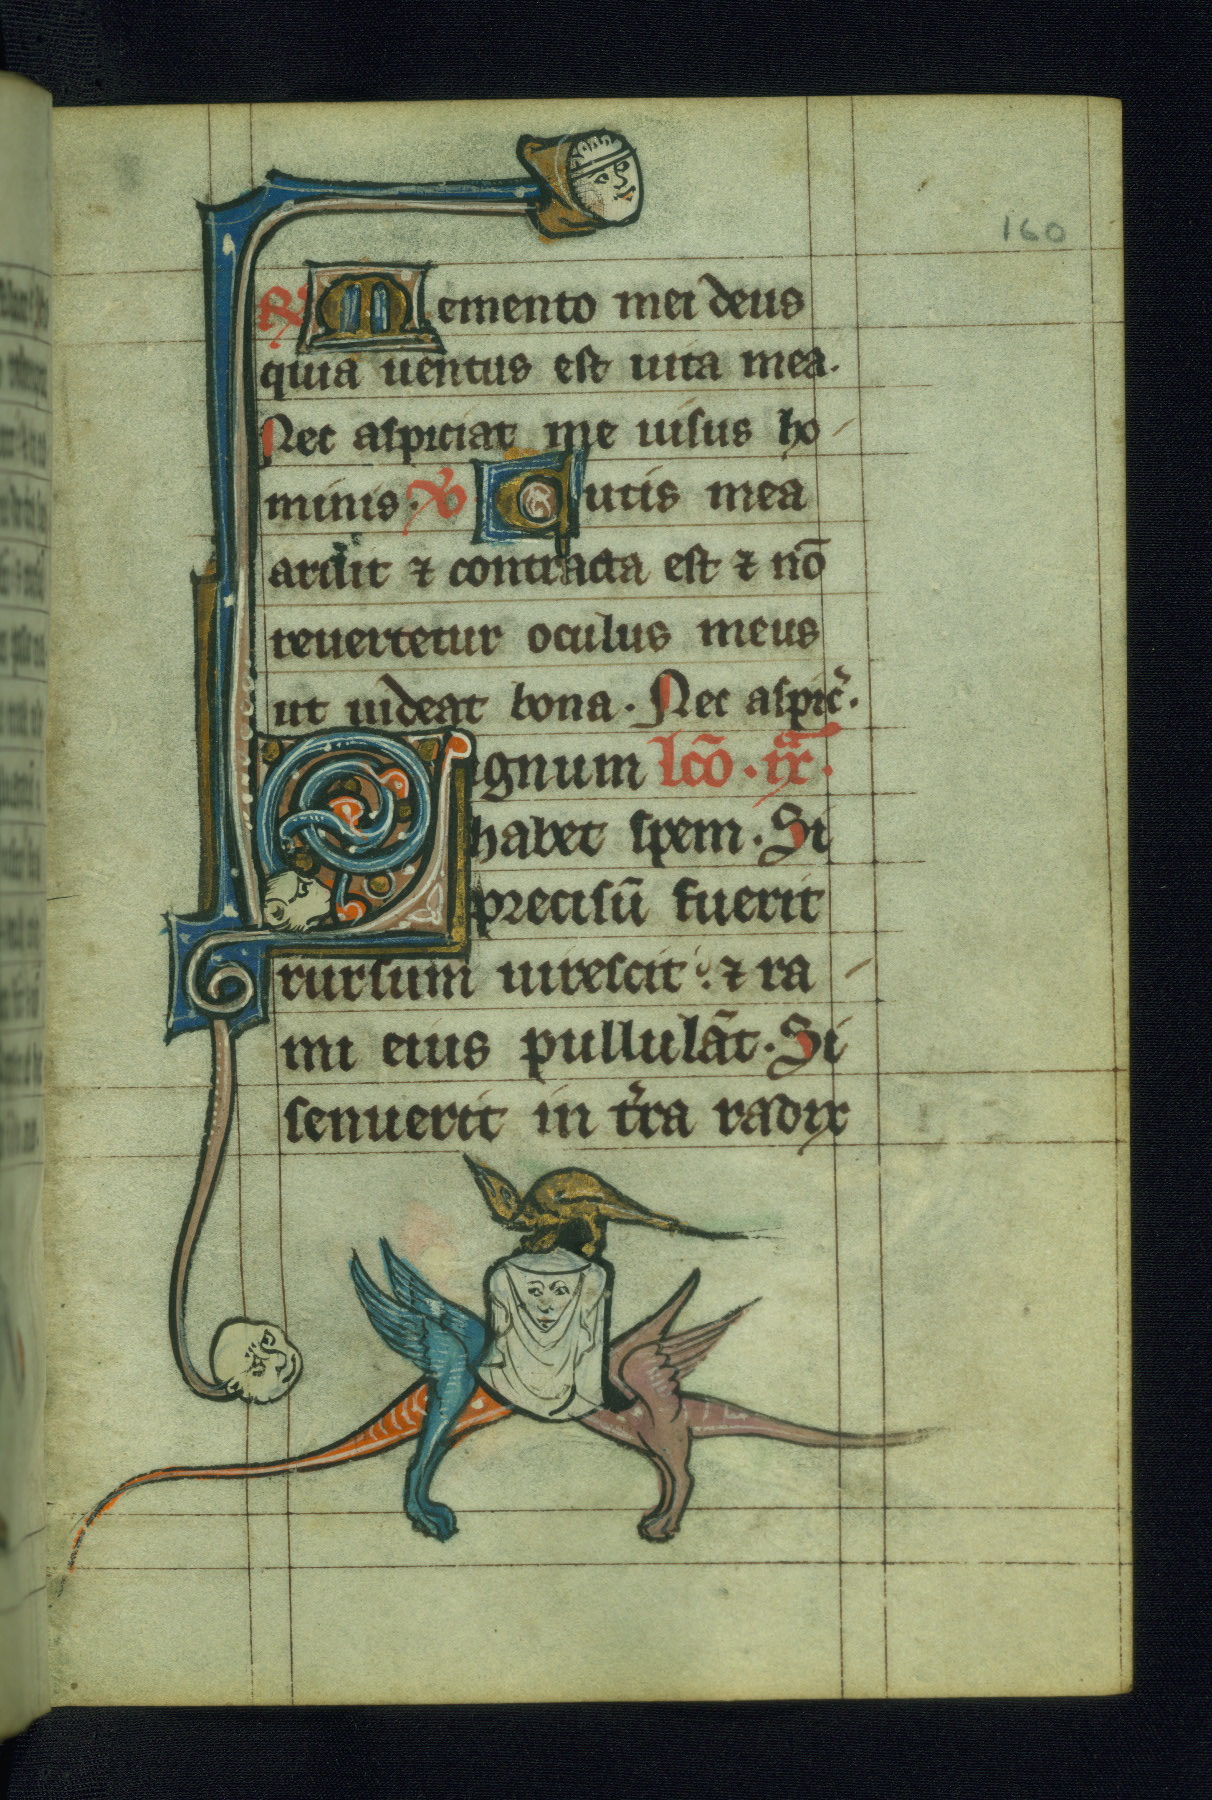 160
℟ Memento mei deus
quia uentus est uita mea.
Nec aspiciat me uisus ho
minis. ℣ Cutis mea
aruit ⁊ contracta est ⁊ nō
reuertetur oculus meus
ut uideat bona. Nec aspic̄.
Lignum lcō. ix.
habet spem. Si
precisū fuerit
rursum uirescit: ⁊ ra
mi eius pullulāt. Si
senuerit in t̄ra radix